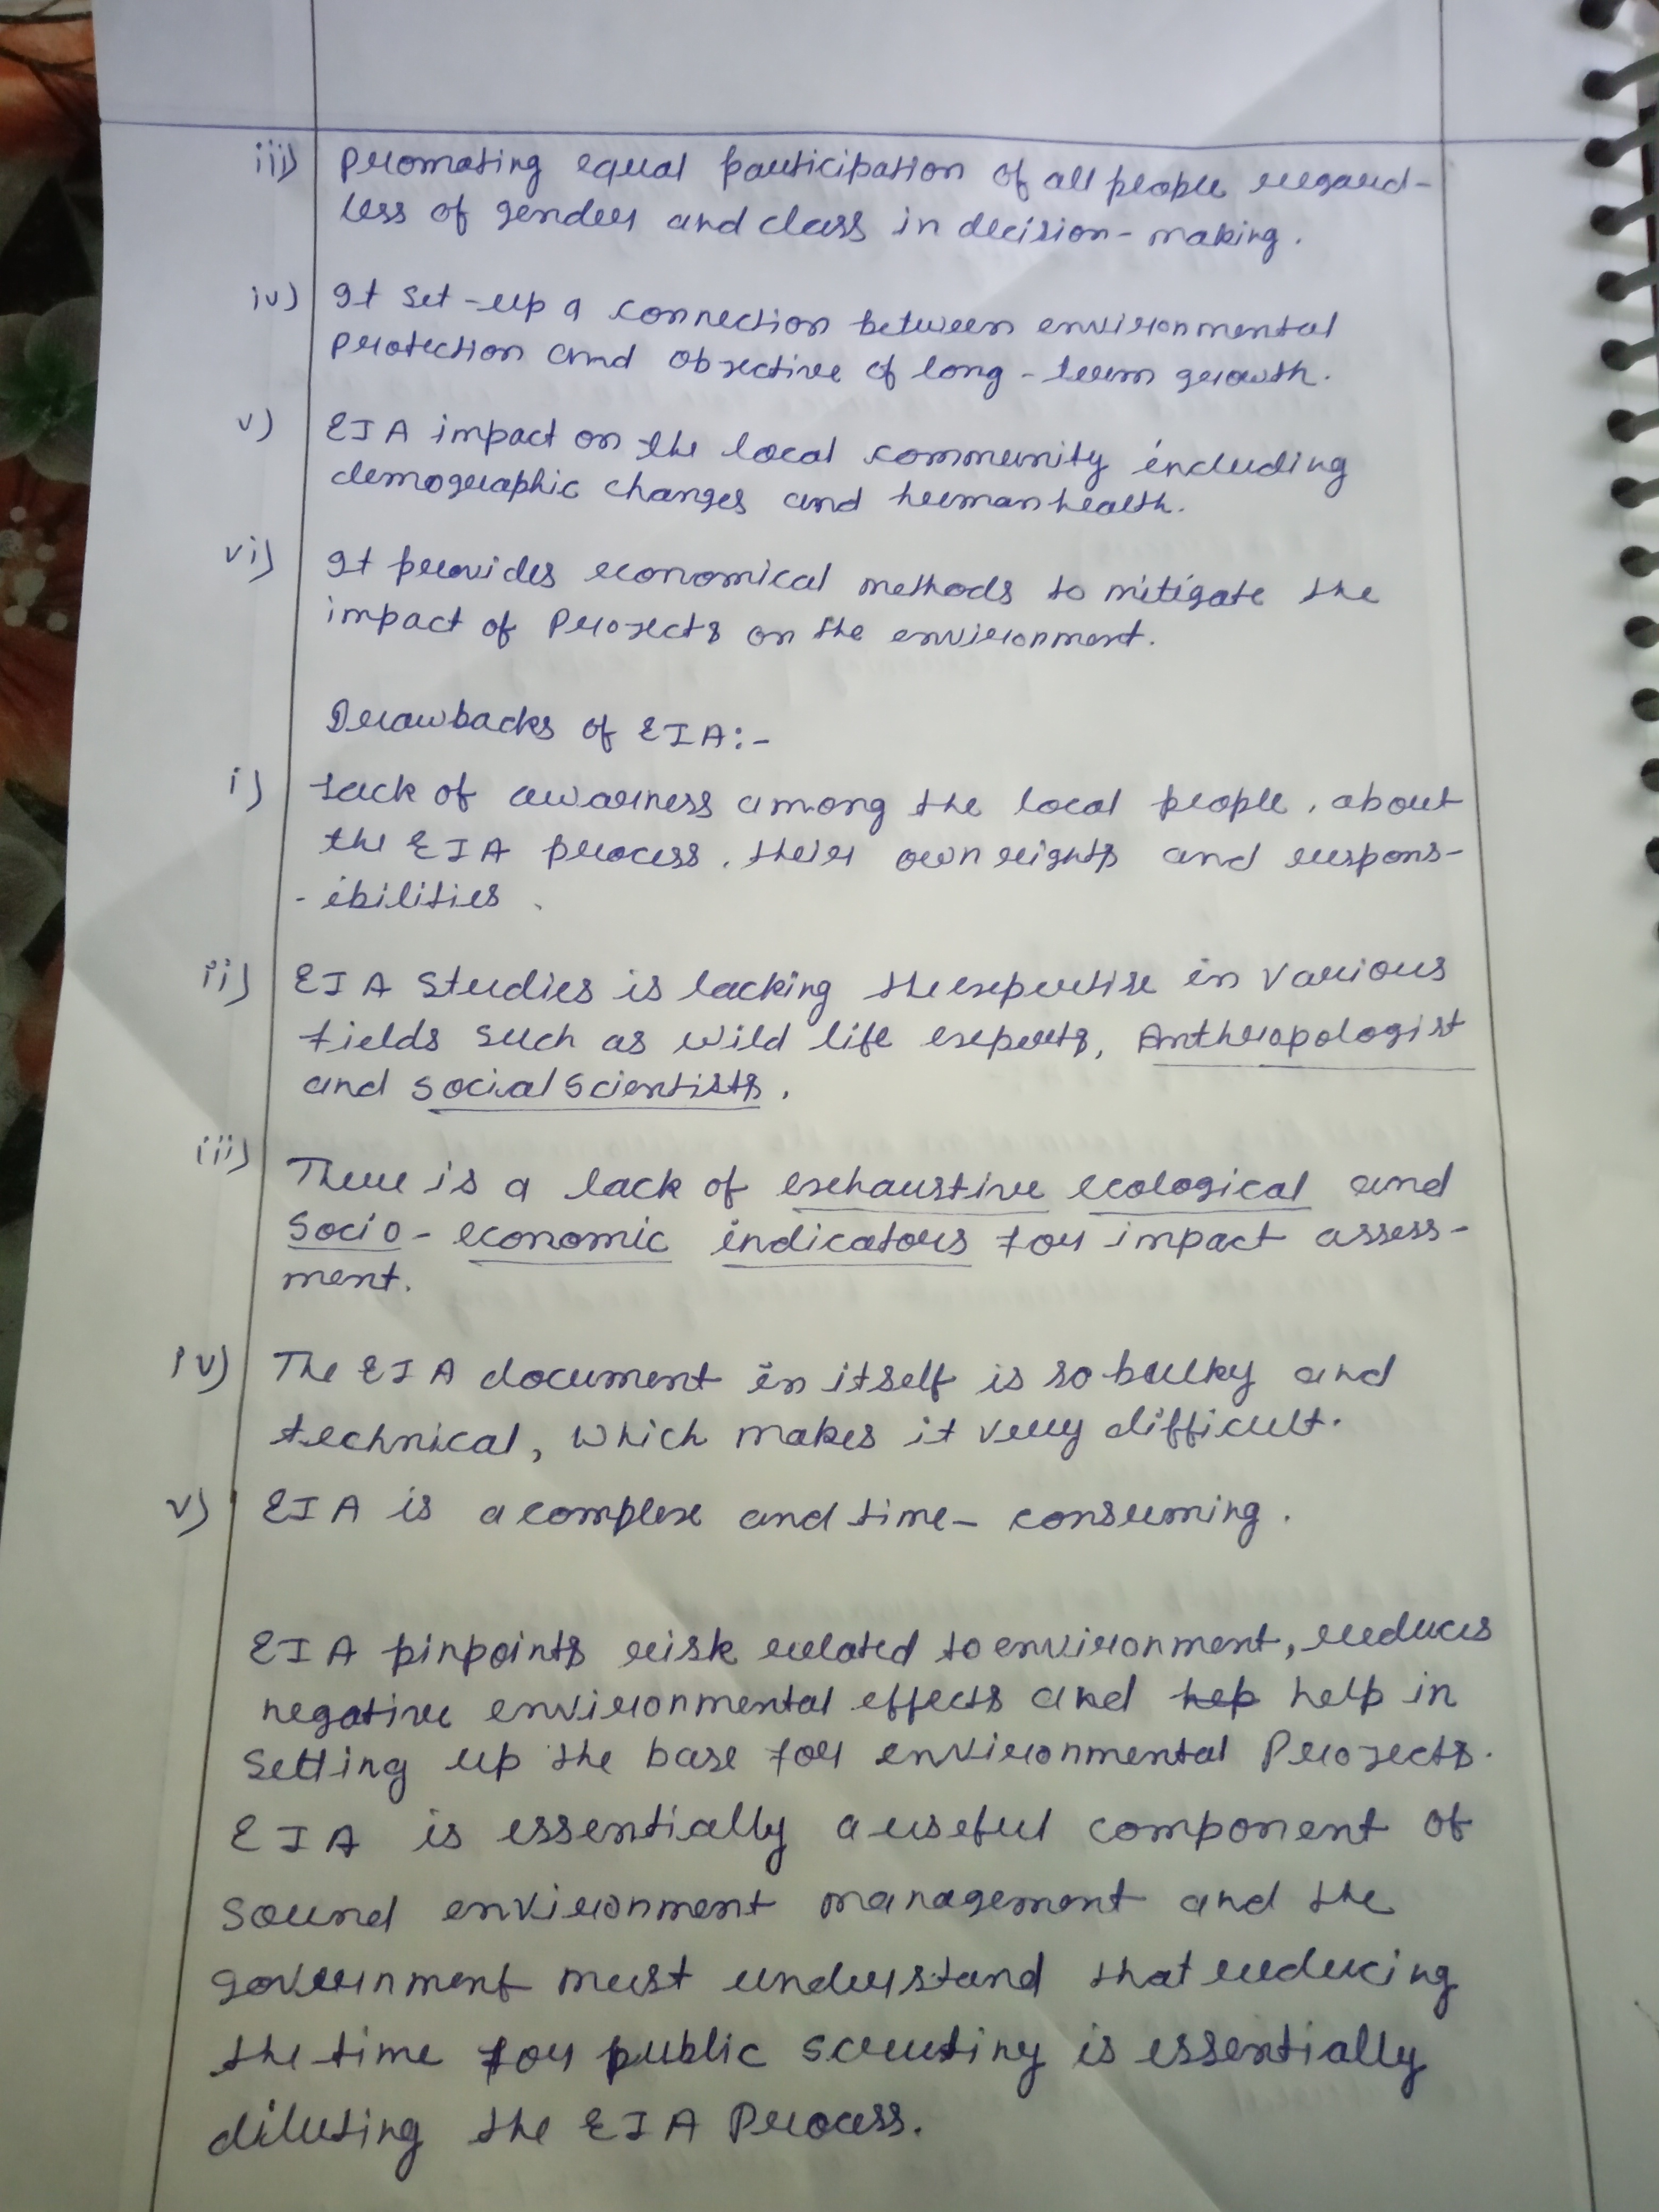 iii) Promoting equal participation of all people regard-
less of gender and class in decision-making.
iv) It set-up a connection between environmental
protection and objective of long-term growth.
v) EIA impact on the local community including
demographic changes and human health.
vi) It provides economical methods to mitigate the
impact of Projects on the environment.
Drawbacks of EIA:-
i) Lack of awarness among the local people, about
the EIA process, their own rights and respons-
-ibilities.
ii) EIA Studies is lacking the expertise in various
fields such as wild life experts, Anthropologist
and social scientists.
iii) There is a lack of exhaustive ecological and
socio-economic indicators for impact assess-
ment.
iv) The EIA document in itself is so bulky and
technical, which makes it very difficult.
v) EIA is a complex and time-consuming.
EIA pinpoints risk related to environment, reduces
negative environmental effects and hep help in
setting up the base for environmental Projects.
EIA is essentially a useful component of
sound environment management and the
government must understand that reducing
the time for public scrutiny is essentially
diluting the EIA Process.